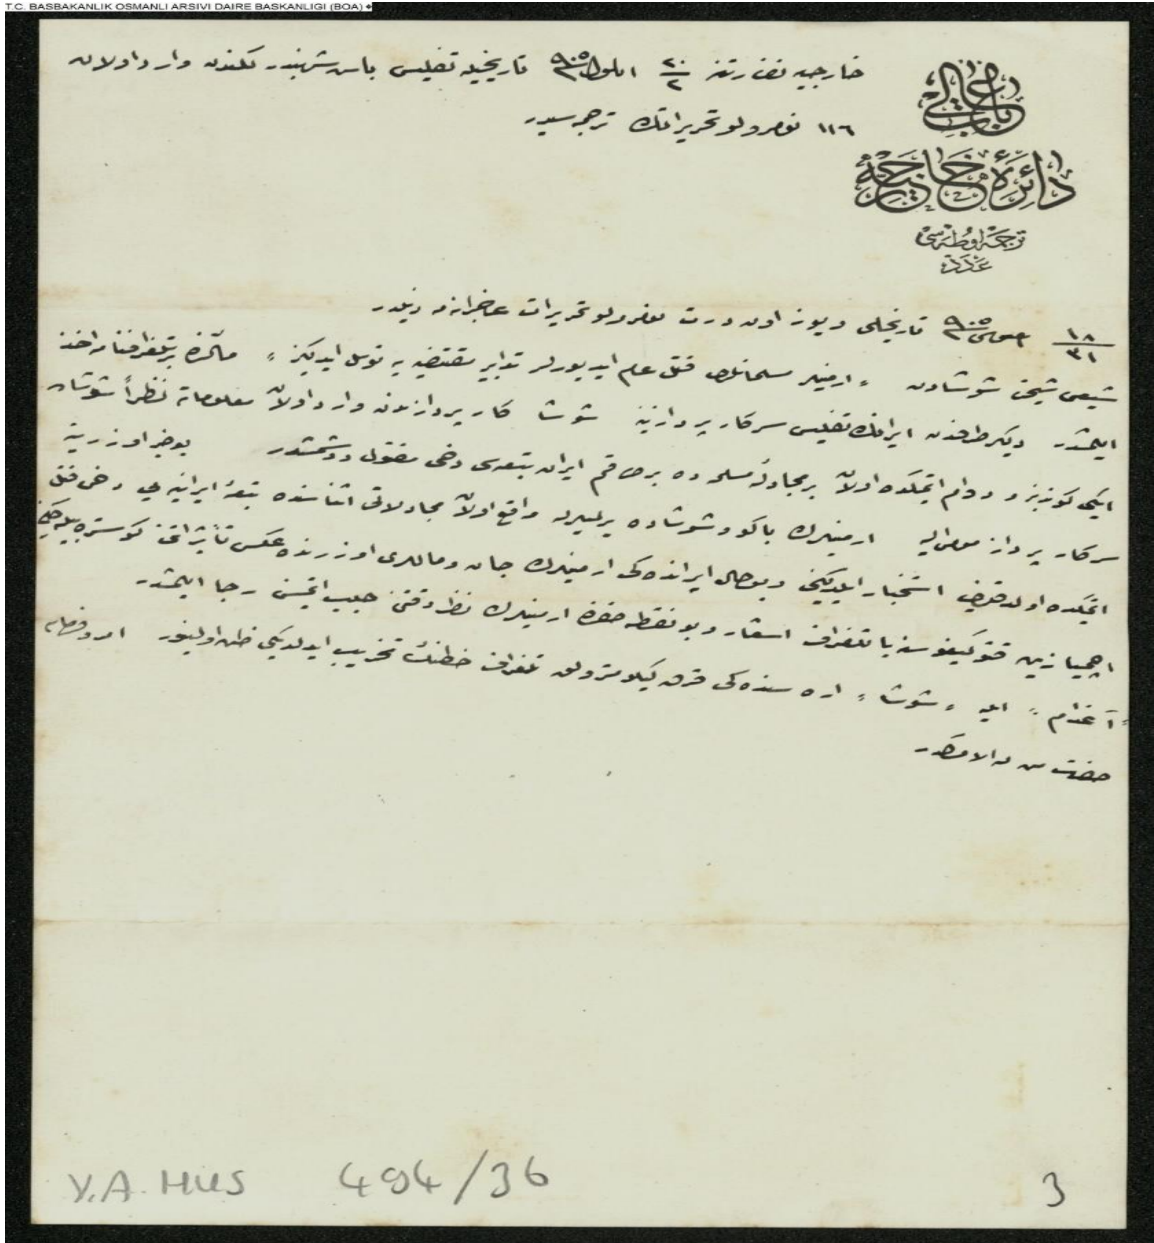 T.C. BASBAKANLIK OSMANLI ARSIVI DAIRE BASKANLIGI (BOA)
باب عالی
دائرهٔ خارجیه
ترجمه اوطه‌سی
عدد
خارجیه نظارتنه ٢٠/٢ ایلول ٩٠٥ تاریخیله تفلیس باش شهبندرلكندن وارد اولان
١١٦ نومرولو تحریراتك ترجمه‌سیدر
١٨/٣١ ٩٠٥ تاریخلی ویوز اون درت نومرولو تحریرات عاجزانه‌مه ذیلدر
شیعی شیخی شوشادن « ارمنیلر مسلمانلری قتل عام ایدیورلر تدابیر مقتضیه‌یه توسل ایدیكز » مآلنده برتلغرافنامه اخذ
ایتمشدر دیكر طرفدن ایرانك تفلیس سركارپردازینه شوشا كارپردازندن وارد اولان معلوماته نظراً شوشاده
ایكی كوندنبرو دوام ایتمكده اولان برمجادلهٔ مسلحه‌ده برطاقم ایران تبعه‌سی دخی مقتول دوشمشدر بوخبر اوزرینه
سركارپرداز مومی‌الیه ارمنیلرك باكو وشوشاده یرلیلرله واقع اولان مجادلاتی اثناسنده تبعهٔ ایرانیه‌یی دخی قتل
ایتمكده اولدقلرینی استخبار ایلدیكنی وبوحالك ایرانده‌كی ارمنیلرك جان وماللری اوزرنده عكس تأثیراتنی كوستره‌بیله‌جكنی
اچمیازین قتوغیقوسنه با تلغراف اشعار وبو نقطه حقنده ارمنیلرك نظر دقتنی جلب ایتمسنی رجا ایلمشدر
« آغدام » ایله « شوشا » اره‌سنده‌كی قرق كیلومترولق تلغراف خطنك تخریب ایدلدیكی ظن اولنیور امر وفرمان
حضرت من له الامركدر
Y.A. HUS 494/36
3